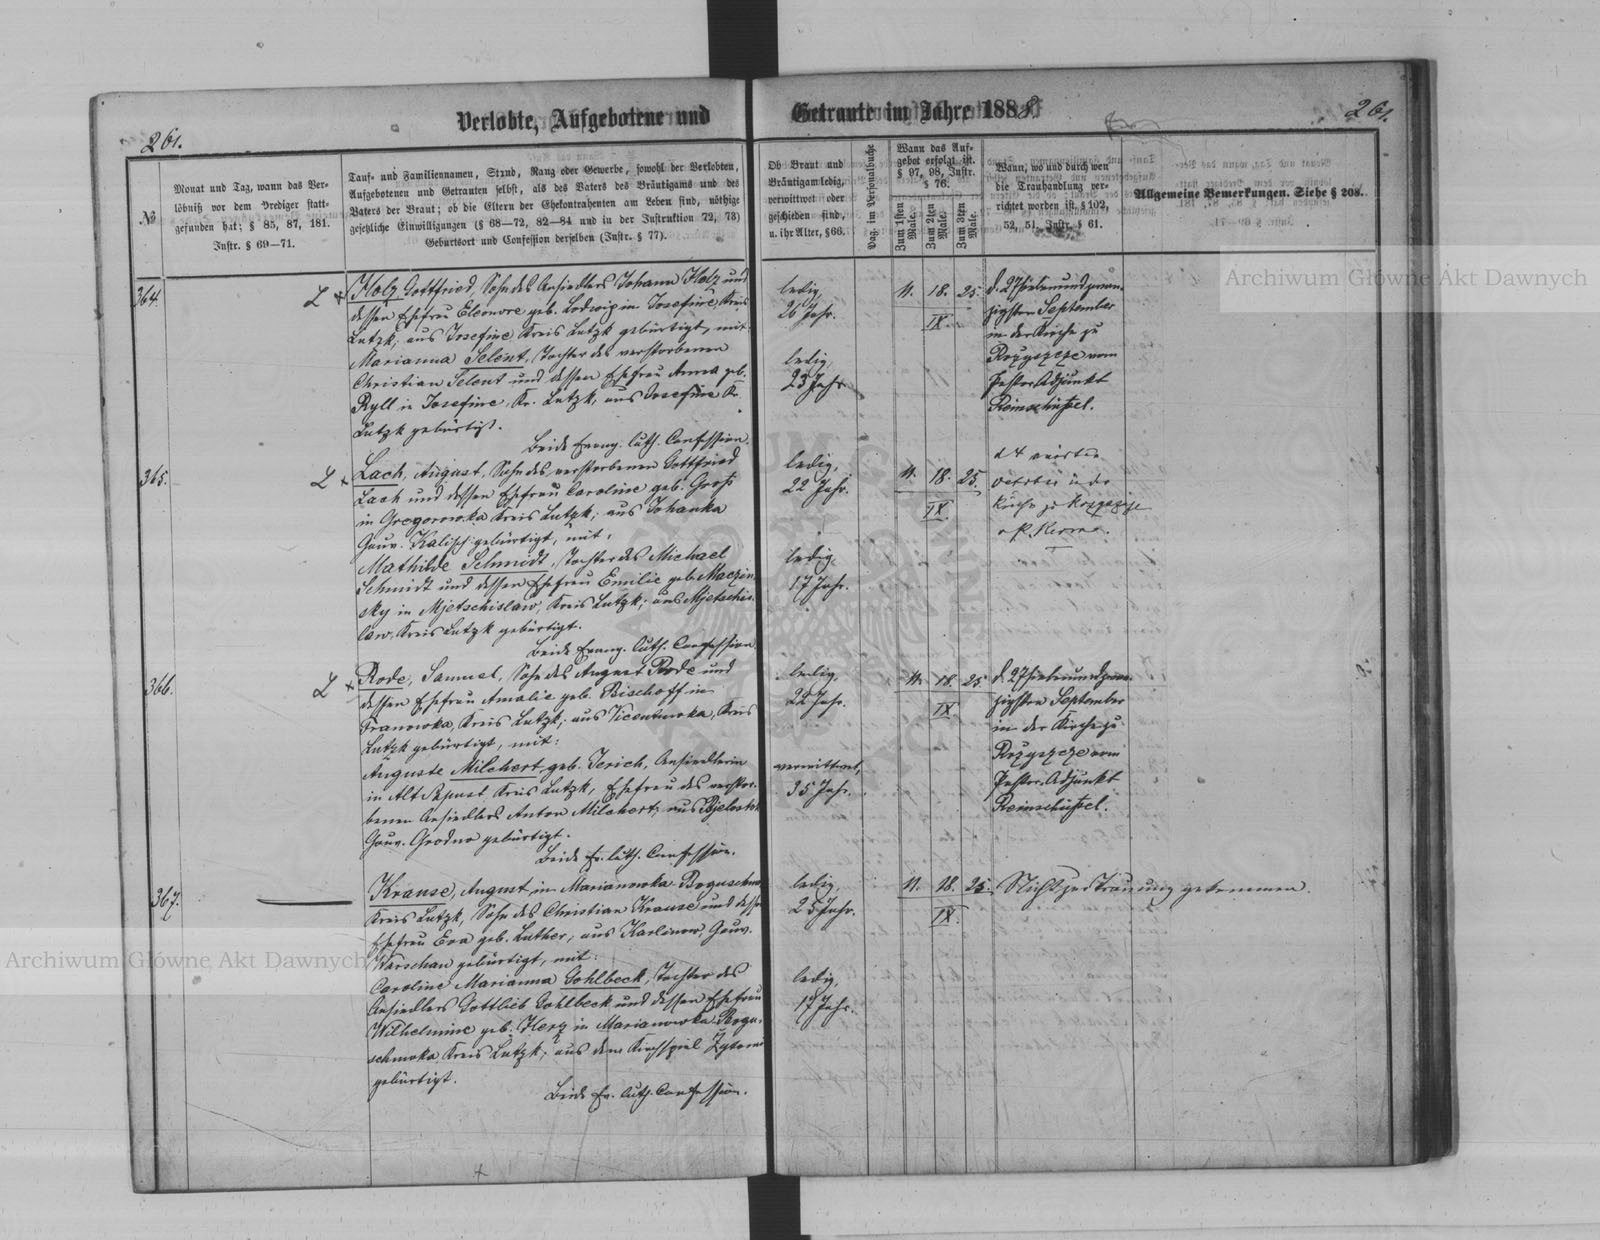 Verlobte, Aufgebotene und
Getraute im Jahre 1888.
261.
261.
№
Monat und Tag, wann das Ver-
löbniß vor dem Prediger statt-
gefunden hat; § 85, 87, 181.
Instr. § 69—71.
Tauf- und Familiennamen, Stand, Rang oder Gewerbe, sowohl der Verlobten,
Aufgebotenen und Getrauten selbst, als des Vaters des Bräutigams und des
Vaters der Braut; ob die Eltern der Ehekontrahenten am Leben sind, nöthige
gesetzliche Einwilligungen (§ 68—72, 82—84 und in der Instruktion 72, 73)
Geburtsort und Confession derselben (Instr. § 77).
Ob Braut und
Bräutigam ledig,
verwittwet oder
geschieden sind,
u. ihr Alter, § 66.
Pag. im Personalbuche
Wann das Auf-
gebot erfolgt ist.
§ 97, 98, Instr.
§ 76.
Zum 1sten Male.
Zum 2ten Male.
Zum 3ten Male.
Wann, wo und durch wen
die Trauhandlung ver-
richtet worden ist. § 102,
52, 51. Instr. § 61.
Allgemeine Bemerkungen. Siehe § 208.
364.
Holz, Gottfried, Sohn des Ansiedlers Johann Holz und
dessen Ehefrau Eleonore geb. Ludwig in Josefine, Kreis
Lutzk; aus Josefine, Kreis Lutzk gebürtigt, mit:
Marianna Selent, Tochter des verstorbenen
Christian Selent und dessen Ehefrau Anna geb.
Ryll in Josefine, Kr. Lutzk, aus Josefine Kr.
Lutzk gebürtigt.
Beide Evang. luth. Confession.
ledig,
26 Jahr.
ledig,
23 Jahr
11. 18. 25.
IX.
d. 27 siebenundzwan-
zigsten September
in der Kirche zu
Rozyszcze vom
Pastor-Adjunkt
Reinschüssel.
365.
Lach, August, Sohn des verstorbenen Gottfried
Lach und dessen Ehefrau Caroline geb. Groß
in Gregorowka Kreis Lutzk; aus Johanka
Gouv. Kalisch gebürtigt, mit:
Mathilde Schmidt, Tochter des Michael
Schmidt und dessen Ehefrau Emilie geb. Maczin-
sky in Mjetschislaw, Kreis Lutzk; aus Mjetschis-
law, Kreis Lutzk gebürtigt.
Beide Evang. luth. Confession.
ledig,
22 Jahr.
ledig,
17 Jahr.
11. 18. 25.
IX.
Kirche zu Rozyszcze
366.
Rode, Samuel, Sohn des August Rode und
dessen Ehefrau Amalie geb. Bischoff in
Franowka, Kreis Lutzk; aus Vicentuwka, Kreis
Lutzk gebürtigt, mit:
Auguste Milchert geb. Jerich, Ansiedlerin
in Alt Kreis Lutzk, Ehefrau des verstor-
benen Ansiedlers Anton Milchert; aus Bjelostok
Gouv. Grodno gebürtigt.
Beide Ev. luth. Confession.
ledig,
22 Jahr.
verwittwet,
35 Jahr.
11. 18. 25.
IX.
d. 27 siebenundzwan-
zigsten September
in der Kirche zu
Rozyszcze vom
Pastor-Adjunkt
Reinschüssel.
367.
Krause, August, in Marianowka-Boguschuwka
Kreis Lutzk, Sohn des Christian Krause und dessen
Ehefrau Eva geb. Luther, aus Karlinow, Gouv.
Warschau gebürtigt, mit:
Caroline Marianna Gohlbeck, Tochter des
Ansiedlers Gottlieb Gohlbeck und dessen Ehefrau
Wilhelmine geb. Herz in Marianowka Bogu-
schuwka, Kreis Lutzk; aus dem Kirchspiel Zytomir
gebürtigt.
Beide Ev. luth. Confession.
ledig,
25 Jahr.
ledig,
17 Jahr.
11. 18. 25.
IX.
Nicht zur Trauung gekommen.
Archiwum Główne Akt Dawnych
Archiwum Główne Akt Dawnych